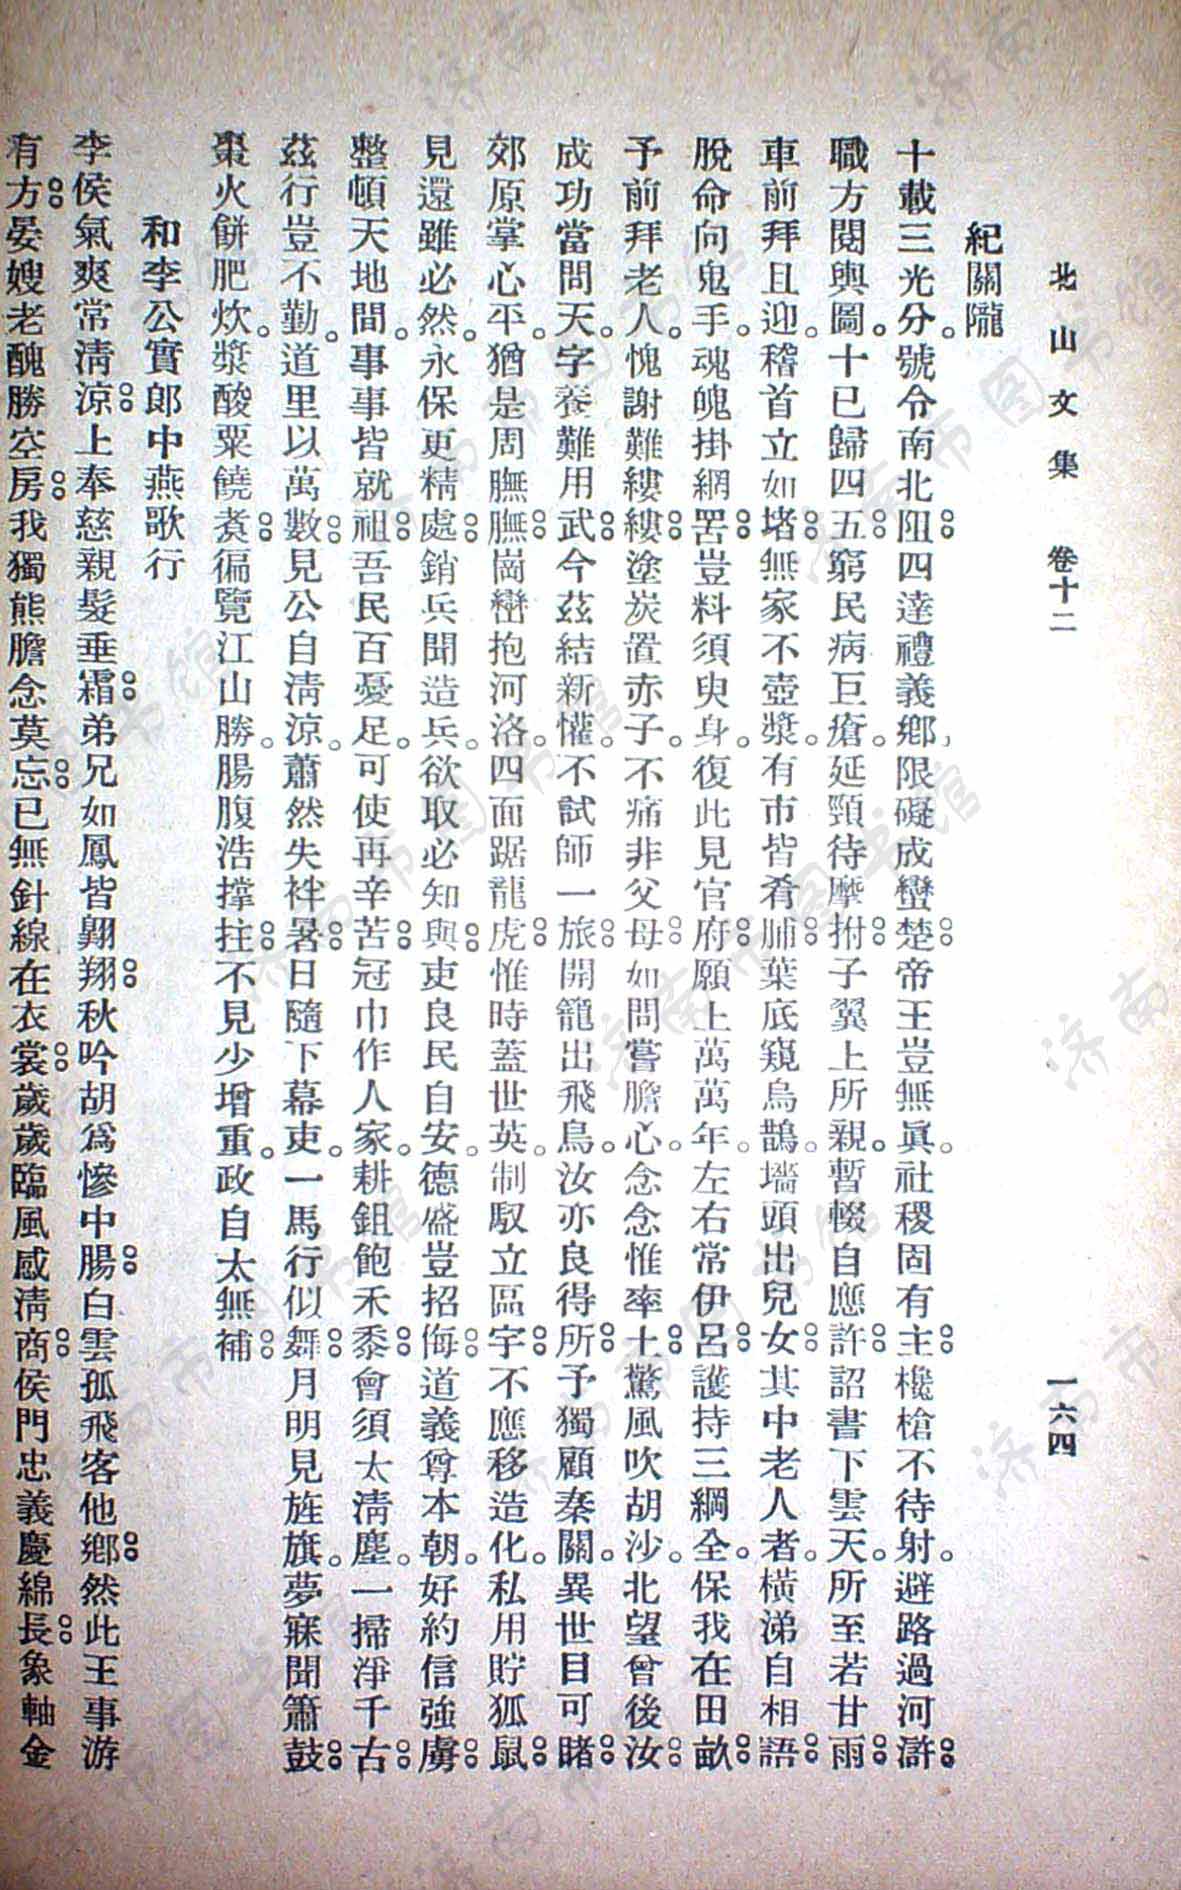 北山文集 卷十二 一六四
紀關隴
十載三光分。號令南北阻。四達禮義鄉，限礙成蠻楚。帝王豈無眞。社稷固有主。欃槍不待射。避路過河滸。
職方閱輿圖。十已歸四五。窮民病巨瘡。延頸待摩拊。子翼上所親。暫輟自應許。詔書下雲天。所至若甘雨。
車前拜且迎。稽首立如堵。無家不壺漿。有市皆肴脯。葉底窺烏鵲。墻頭出兒女。其中老人者。橫涕自相語。
脫命向鬼手。魂魄掛網罟。豈料須臾身。復此見官府。願上萬萬年。左右常伊呂。護持三綱全。保我在田畝。
予前拜老人。愧謝難縷縷。塗炭置赤子。不痛非父母。如問嘗膽心。念念惟率土。驚風吹胡沙。北望曾後汝。
成功當問天。字養難用武。今茲結新懽。不試師一旅。開籠出飛鳥。汝亦良得所。予獨顧秦關。異世目可睹。
郊原掌心平。猶是周膴膴。崗巒抱河洛。四面踞龍虎。惟時蓋世英。制馭立區宇。不應移造化。私用貯狐鼠。
見還雖必然。永保更精處。銷兵聞造兵。欲取必知與。吏良民自安。德盛豈招侮。道義尊本朝。好約信強虜。
整頓天地間。事事皆就祖。吾民百憂足。可使再辛苦。冠巾作人家。耕鉏飽禾黍。會須太淸塵。一掃淨千古。
茲行豈不勤。道里以萬數。見公自淸涼。蕭然失袢暑。日隨下幕吏。一馬行似舞。月明見旌旗。夢寐聞簫鼓。
棗火餅肥炊。漿酸粟饒煑。徧覽江山勝。腸腹浩撐拄。不見少增重。政自太無補。
和李公實郞中燕歌行
李侯氣爽常淸涼。上奉慈親髮垂霜。弟兄如鳳皆翺翔。秋吟胡爲慘中腸。白雲孤飛客他鄉。然此王事游
有方。晏嫂老醜勝空房。我獨熊膽念莫忘。已無針線在衣裳。歲歲臨風感淸商。侯門忠義慶綿長。象軸金